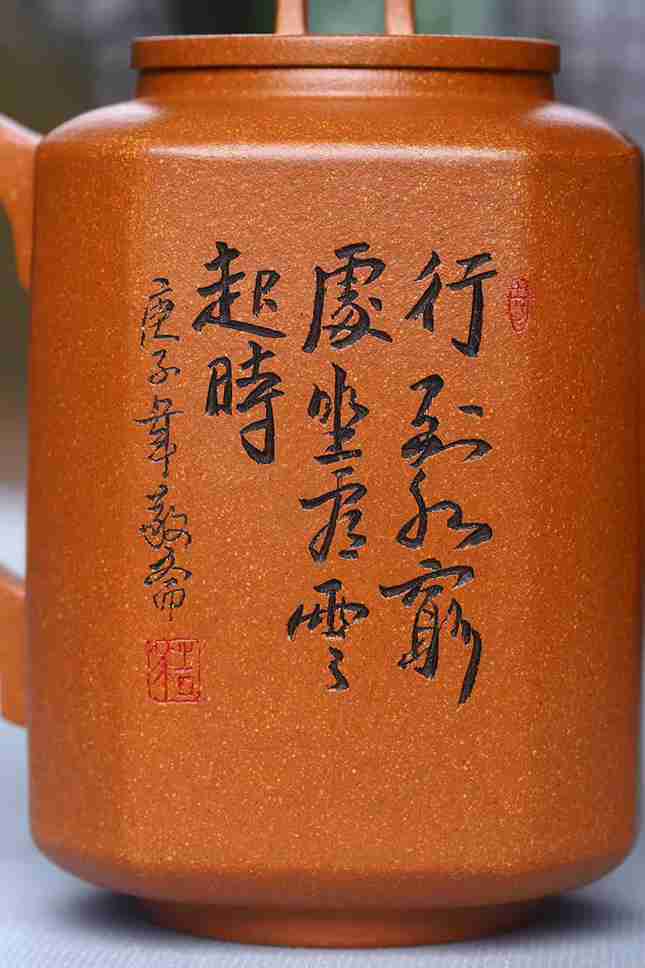 行到水窮
處坐看雲
起時
庚子年敬斋